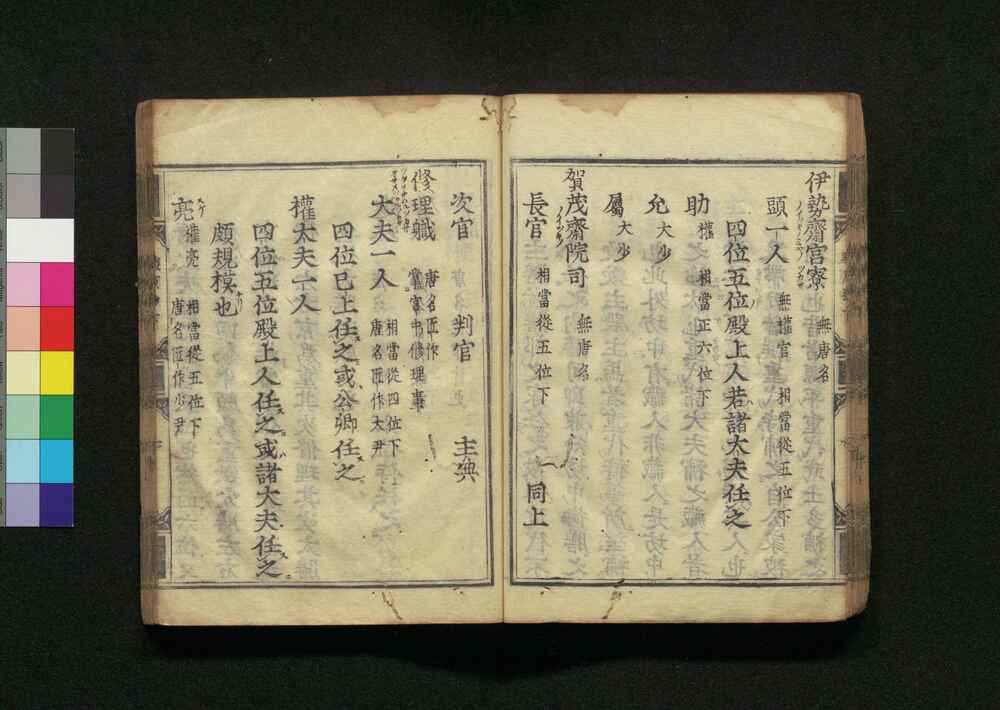 伊勢齋宮寮 無唐名
頭一人 無權官 相當從五位下
四位五位殿上人若諸大夫任之
助 權 相當正六位下
允 大少
屬 大少
賀茂齋院司 無唐名
長官 相當從五位下 同上
次官 判官 主典
修理職 唐名匠作 掌宮中修理事
大夫一人 相當從四位下 唐名匠作大尹
四位已上任之或公卿任之
權大夫一人
四位五位殿上人任之或諸大夫任之
頗規模也
亮 權亮 相當從五位下 唐名匠作少尹